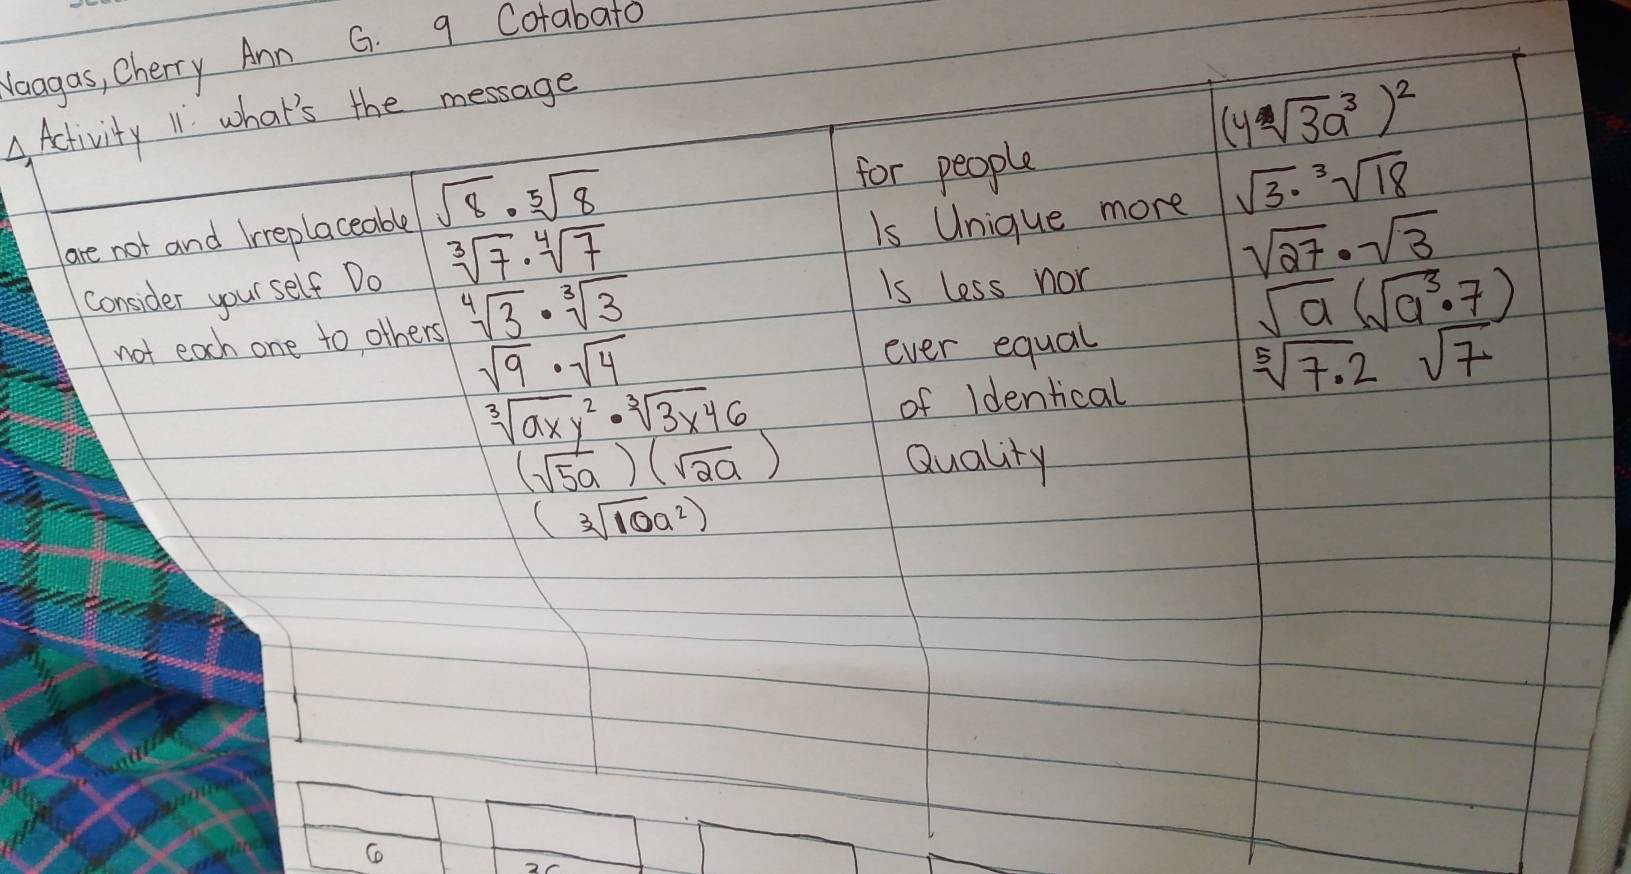 Naagas, Cherry Ann G. 9 Cotabato
Activity 11: what's the message
are not and Irreplaceable √8 · ⁵√8 for people (4√3a³)²
consider your self Do ³√7 · ⁴√7 Is Unique more √3 · ³√18
not each one to others ⁴√3 · ³√3 Is less nor √27 · √3
√9 · √4 ever equal √a (√a³ · 7)
³√axy² · ³√3x46 of Identical ⁵√7.2 √7
(√5a) (√2a) Quality
(³√10a²)
6